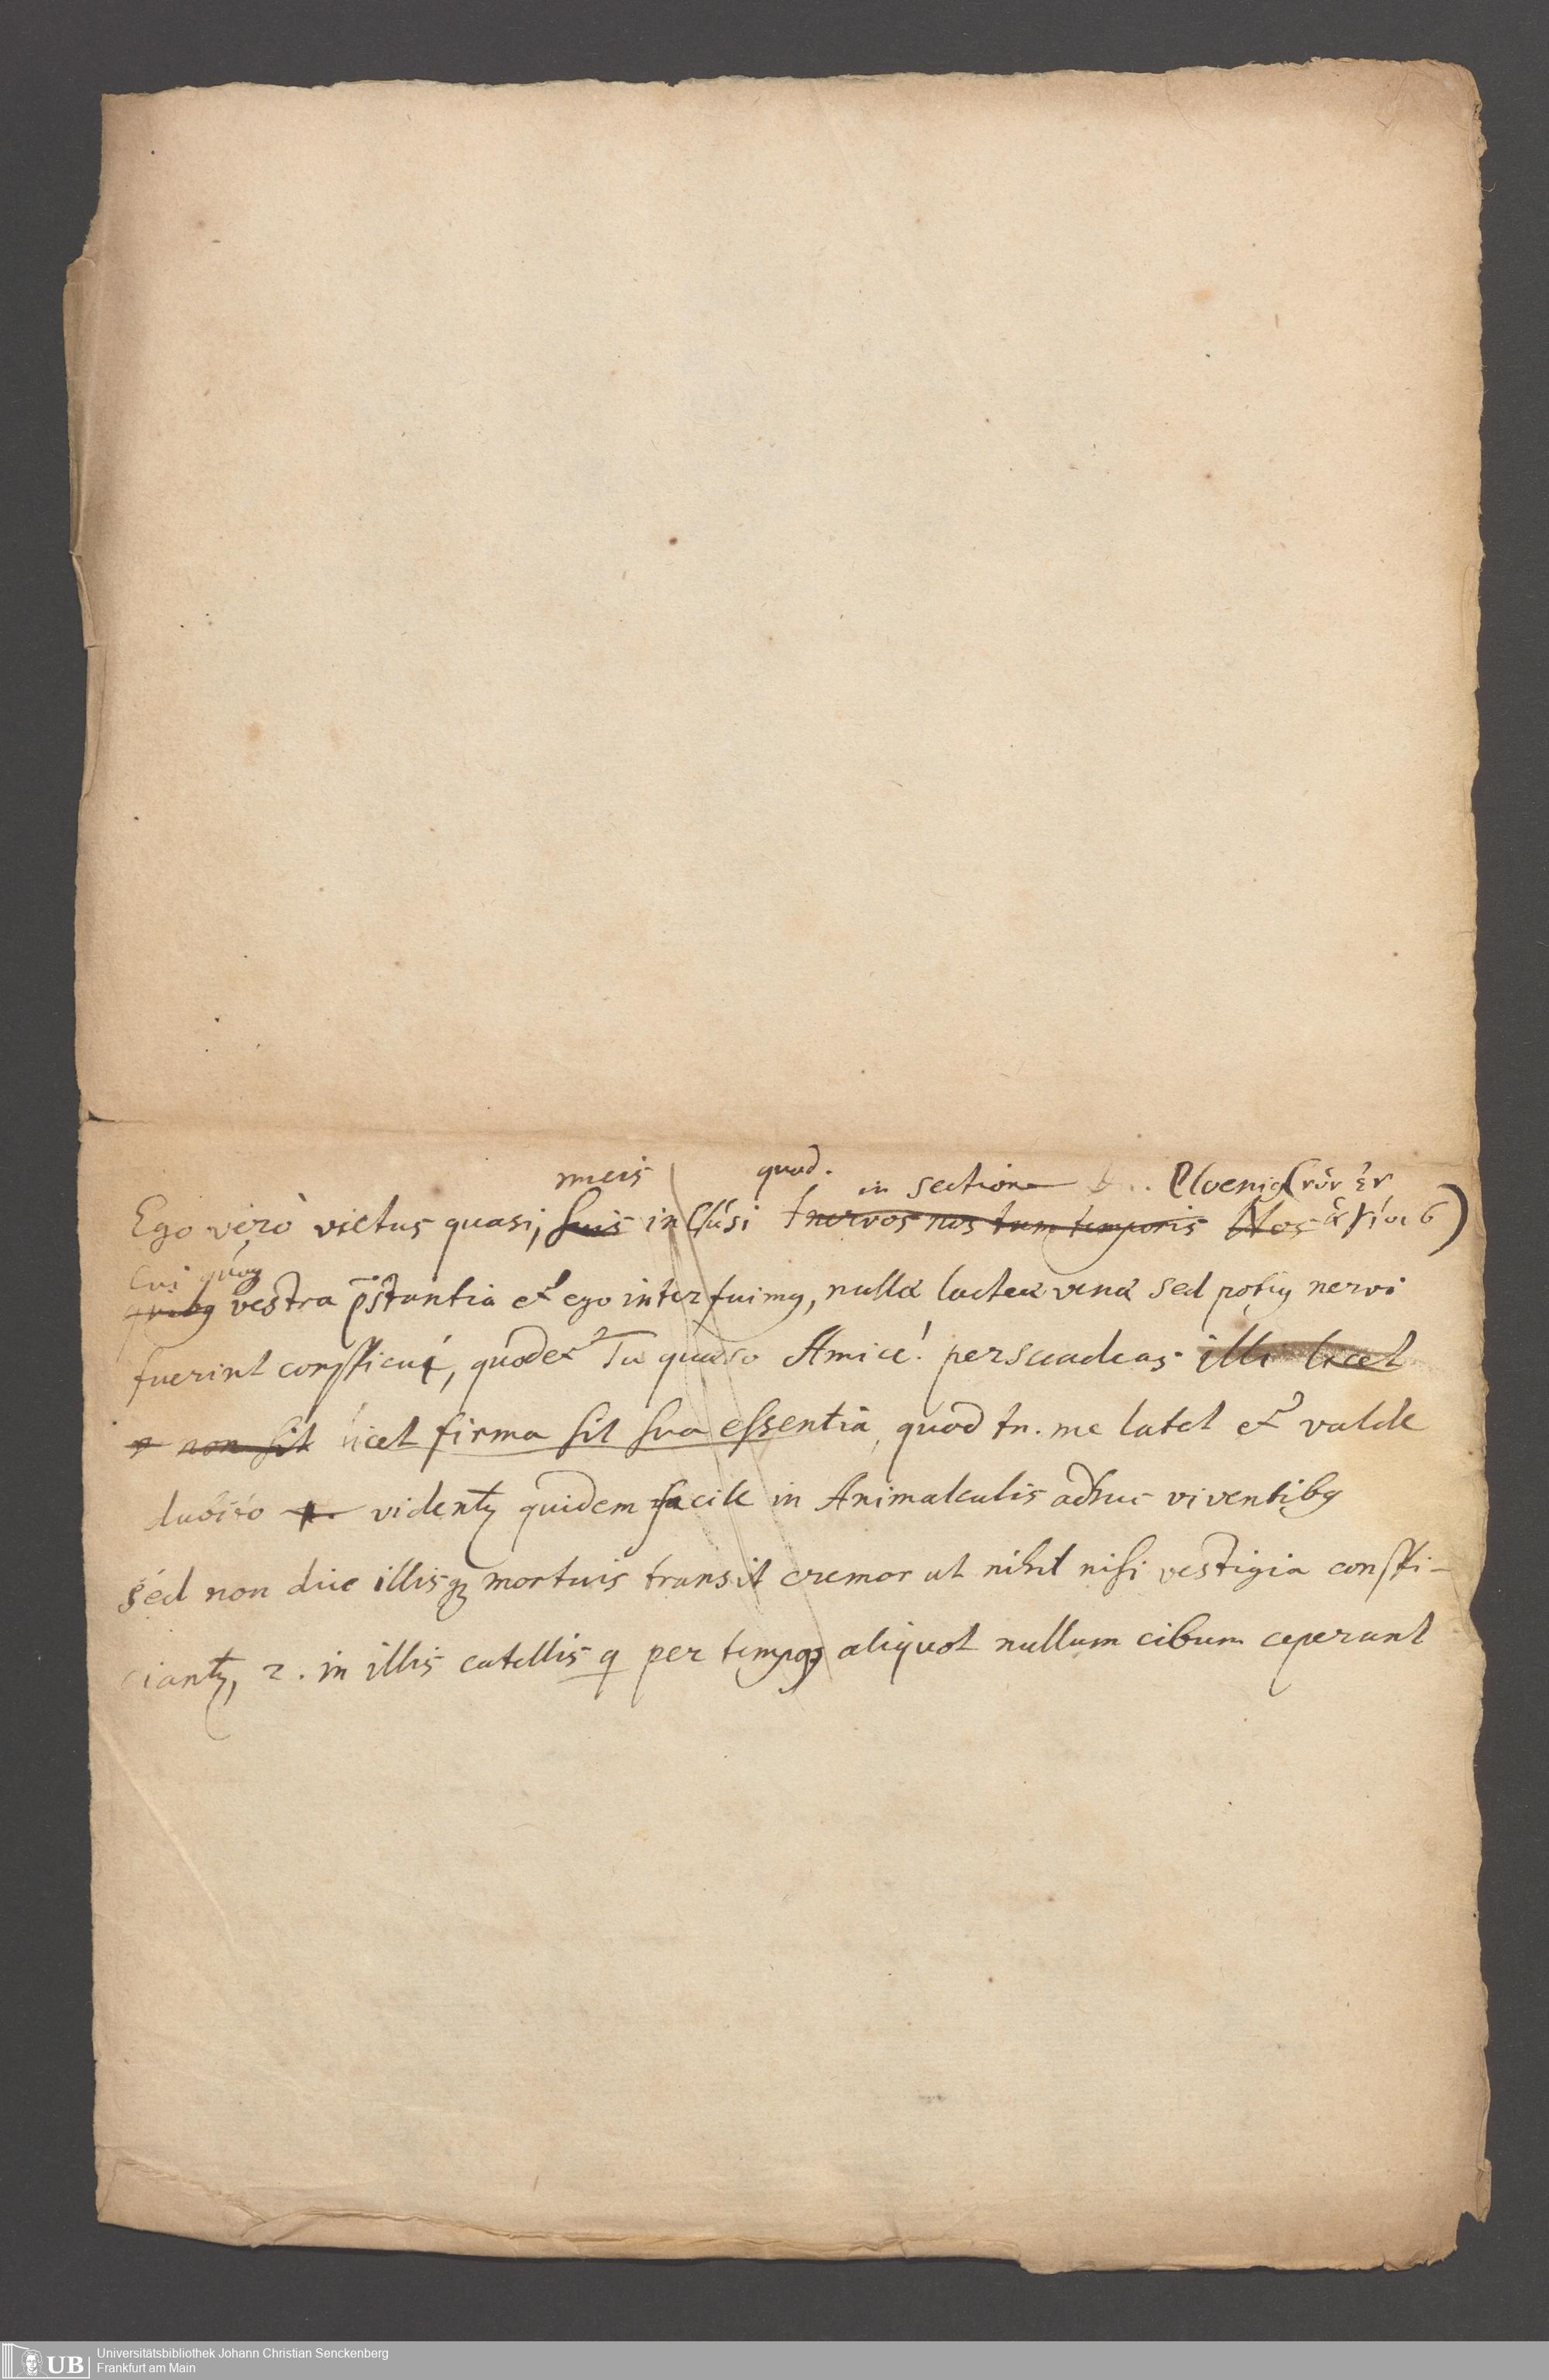 meis quod. in sectione Ploenig (νῦν ἐν
Ego verò victus quasi, suis inclusi nervos nos tum temporis Nos ἁγίοις)
Cui quoq
quibq vestra p̄stantia et ego interfuimq, nulla lactea vena sed potiq nervi
fuerint conspicui, quod et Tu quaeso Amice! persuadeas illi licet
non sit licet firma sit sua essentia, quod tn. me latet et valde
dubito videntʒ quidem facile in Animalculis adhuc viventibq
sed non diu illisqʒ mortuis transit cremor ut nihil nisi vestigia conspi-
ciantʒ, 2. in illis catellis q per tempq aliquot nullum cibum ceperant
UB Universitätsbibliothek Johann Christian Senckenberg
Frankfurt am Main